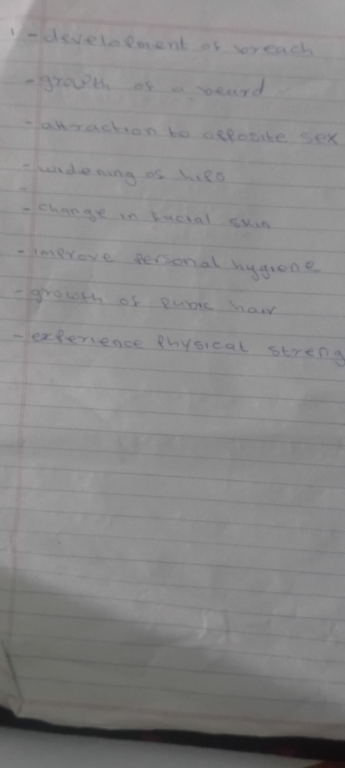 1 - development of breach
- growth of a beard
- attraction to opposite sex
- widening of hips
- change in facial skin
- improve personal hygiene
- growth of pubic hair
- experience physical streng